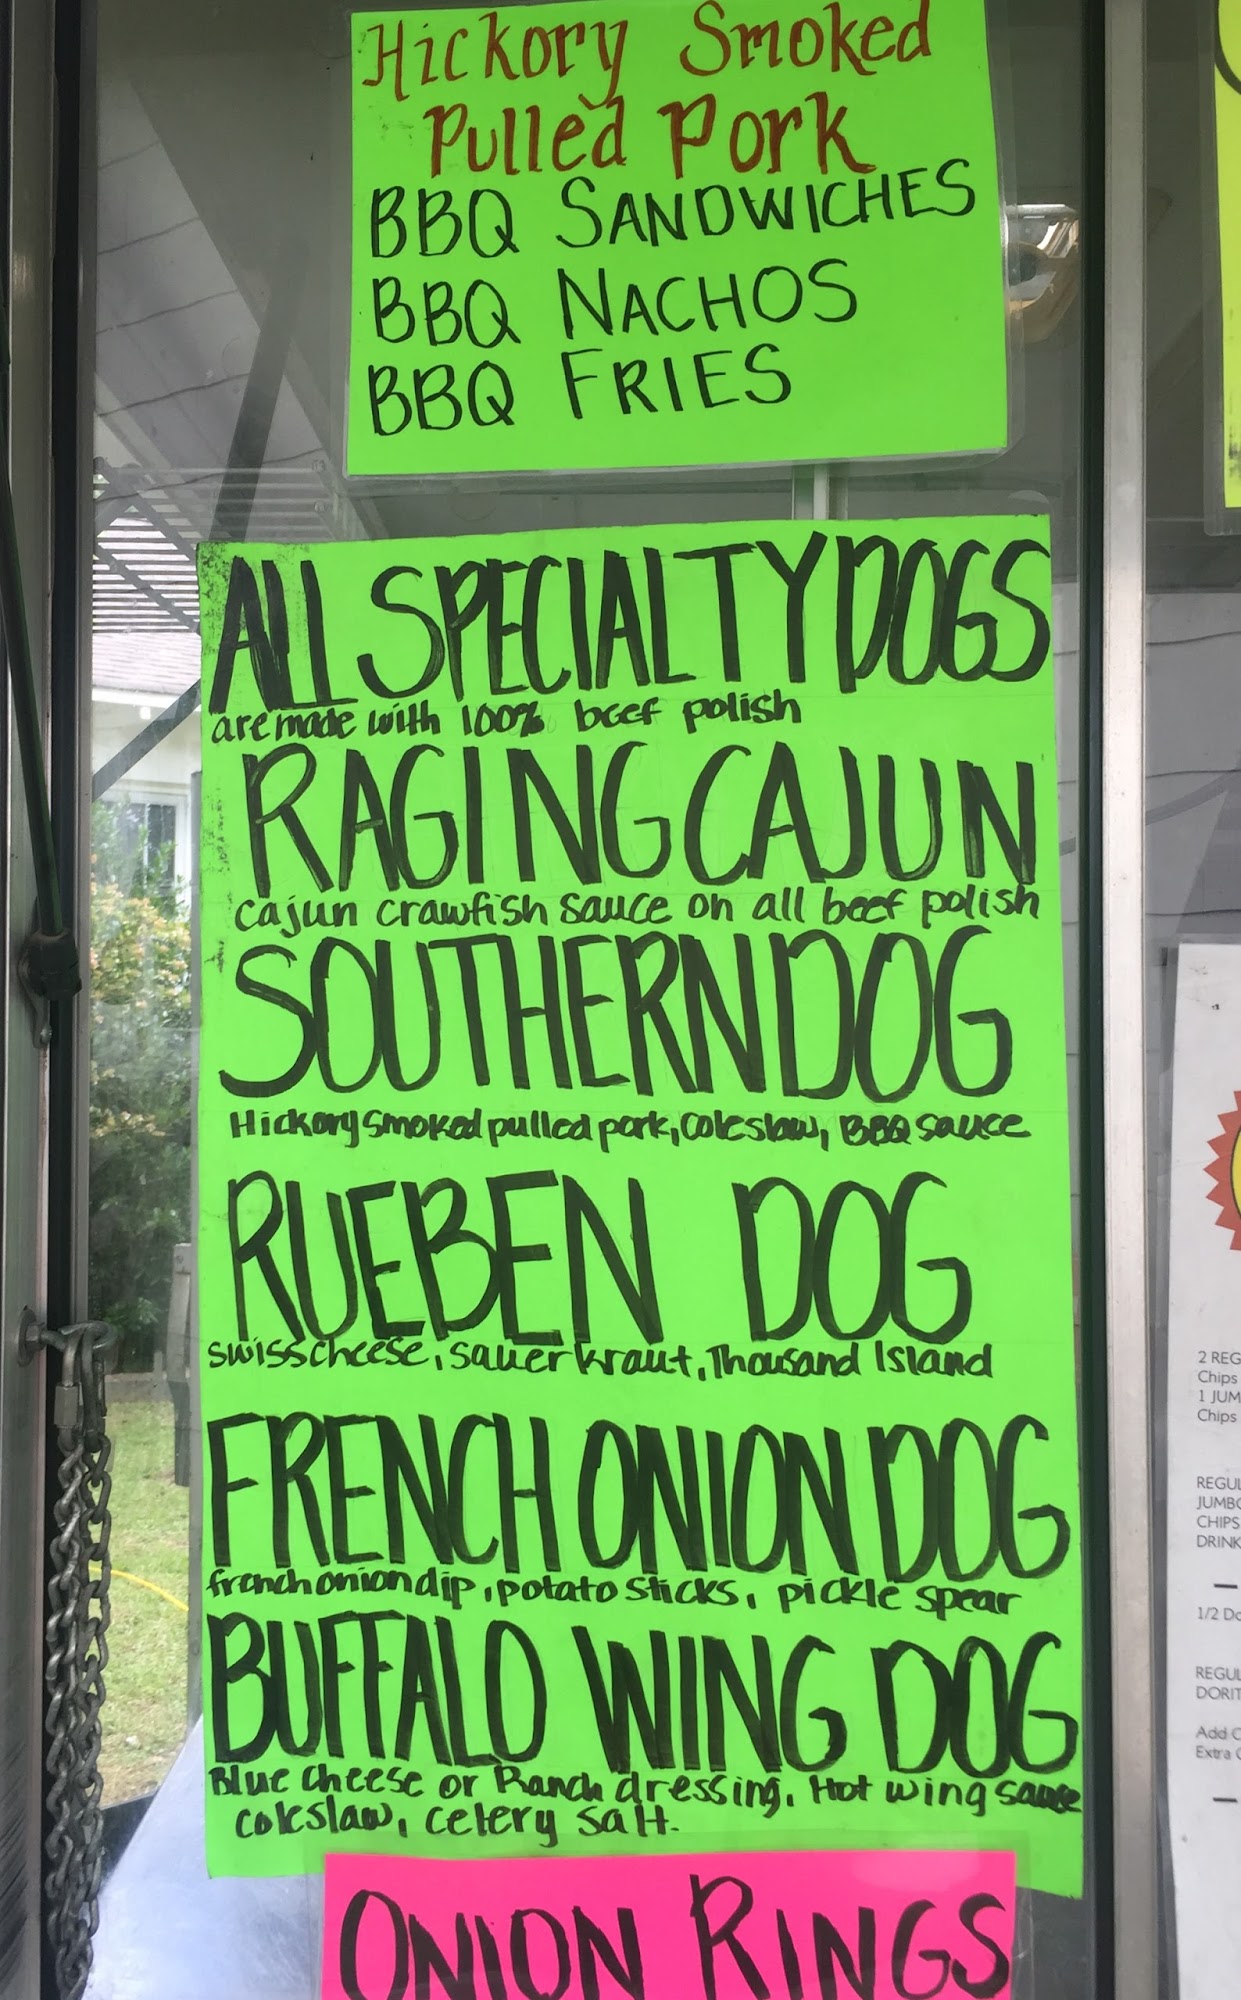 Hickory Smoked
Pulled Pork
BBQ SANDWICHES
BBQ NACHOS
BBQ FRIES
ALL SPECIALTY DOGS
are made with 100% beef polish
RAGING CAJUN
cajun crawfish sauce on all beef polish
SOUTHERN DOG
Hickory smoked pulled pork, coleslaw, BBQ sauce
RUEBEN DOG
swiss cheese, sauerkraut, Thousand Island
FRENCH ONION DOG
french onion dip, potato sticks, pickle spear
BUFFALO WING DOG
Blue cheese or Ranch dressing, Hot wing sauce
coleslaw, celery salt.
ONION RINGS
2 REG
Chips
1 JUM
Chips
REGUL
JUMBO
CHIPS
DRINK
1/2 Do
REGUL
DORIT
Add C
Extra